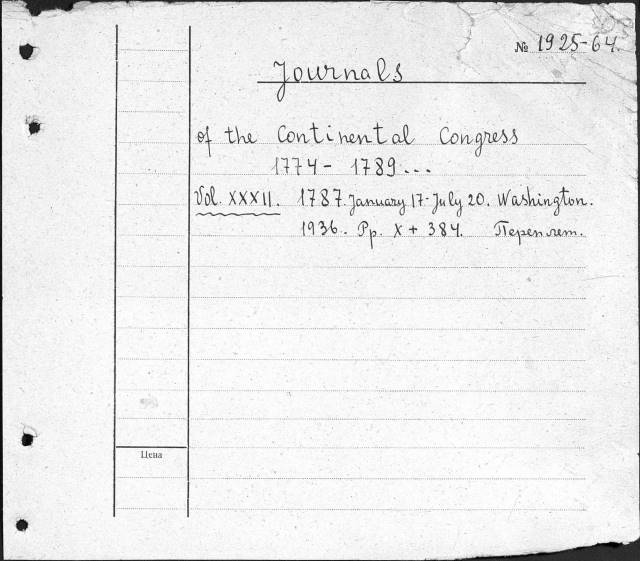 № 1925-64.
Journals
of the Continental Congress
1774 - 1789...
Vol. XXXII. 1787. January 17 - July 20. Washington.
1936. Pp. X + 384. Переплет.
Цена